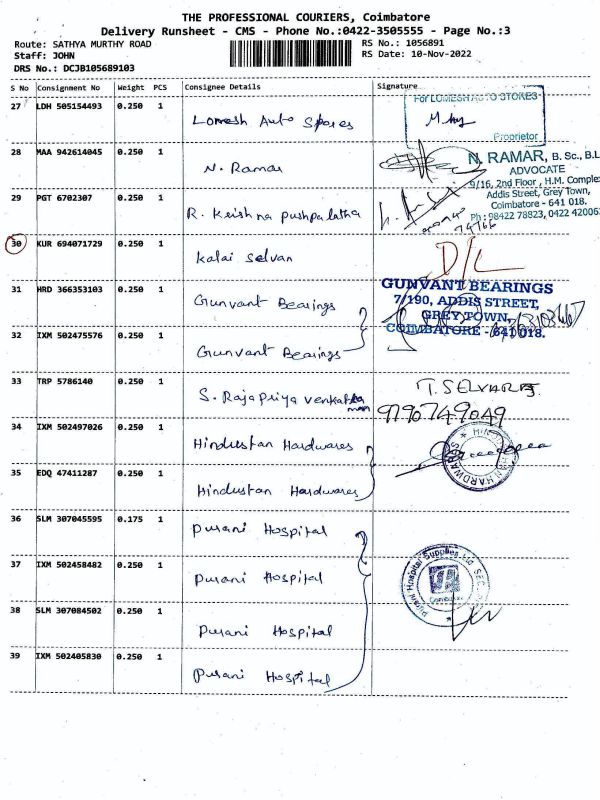 THE PROFESSIONAL COURIERS, Coimbatore
Delivery Runsheet - CMS - Phone No.:0422-3505555 - Page No.:3
Route: SATHYA MURTHY ROAD
RS No.: 1056891
Staff: JOHN
RS Date: 10-Nov-2022
DRS No.: DCJB105689103
S No Consignment No Weight PCS Consignee Details Signature
27 LDH 505154493 0.250 1 Lomesh Auto Spares
For LOMESH AUTO STORES
Proprietor
28 MAA 942614045 0.250 1 N. Ramar
N. RAMAR, B. Sc., B.L
ADVOCATE
9/16, 2nd Floor, H.M. Complex
Addis Street, Grey Town,
Coimbatore - 641 018.
Ph : 98422 78823, 0422 420063
29 PGT 6702307 0.250 1 R. Krishna pushpalatha
30 KUR 694071729 0.250 1 Kalai Selvan
D/L
31 HRD 366353103 0.250 1 Gunvant Bearings
GUNVANT BEARINGS
7/190, ADDIS STREET,
GREY TOWN,
COIMBATORE - 641 018.
32 IXM 502475576 0.250 1 Gunvant Bearings
33 TRP 5786140 0.250 1 S. Rajapriya venkatraman
T. SELVARAJ
9790749049
34 IXM 502497026 0.250 1 Hindustan Hardwares
35 EDQ 47411287 0.250 1 Hindustan Hardwares
36 SLM 307045595 0.175 1 Purani Hospital
37 IXM 502458482 0.250 1 Purani Hospital
Purani Hospital Supplies Ltd
38 SLM 307084502 0.250 1 Purani Hospital
39 IXM 502405830 0.250 1 Purani Hospital